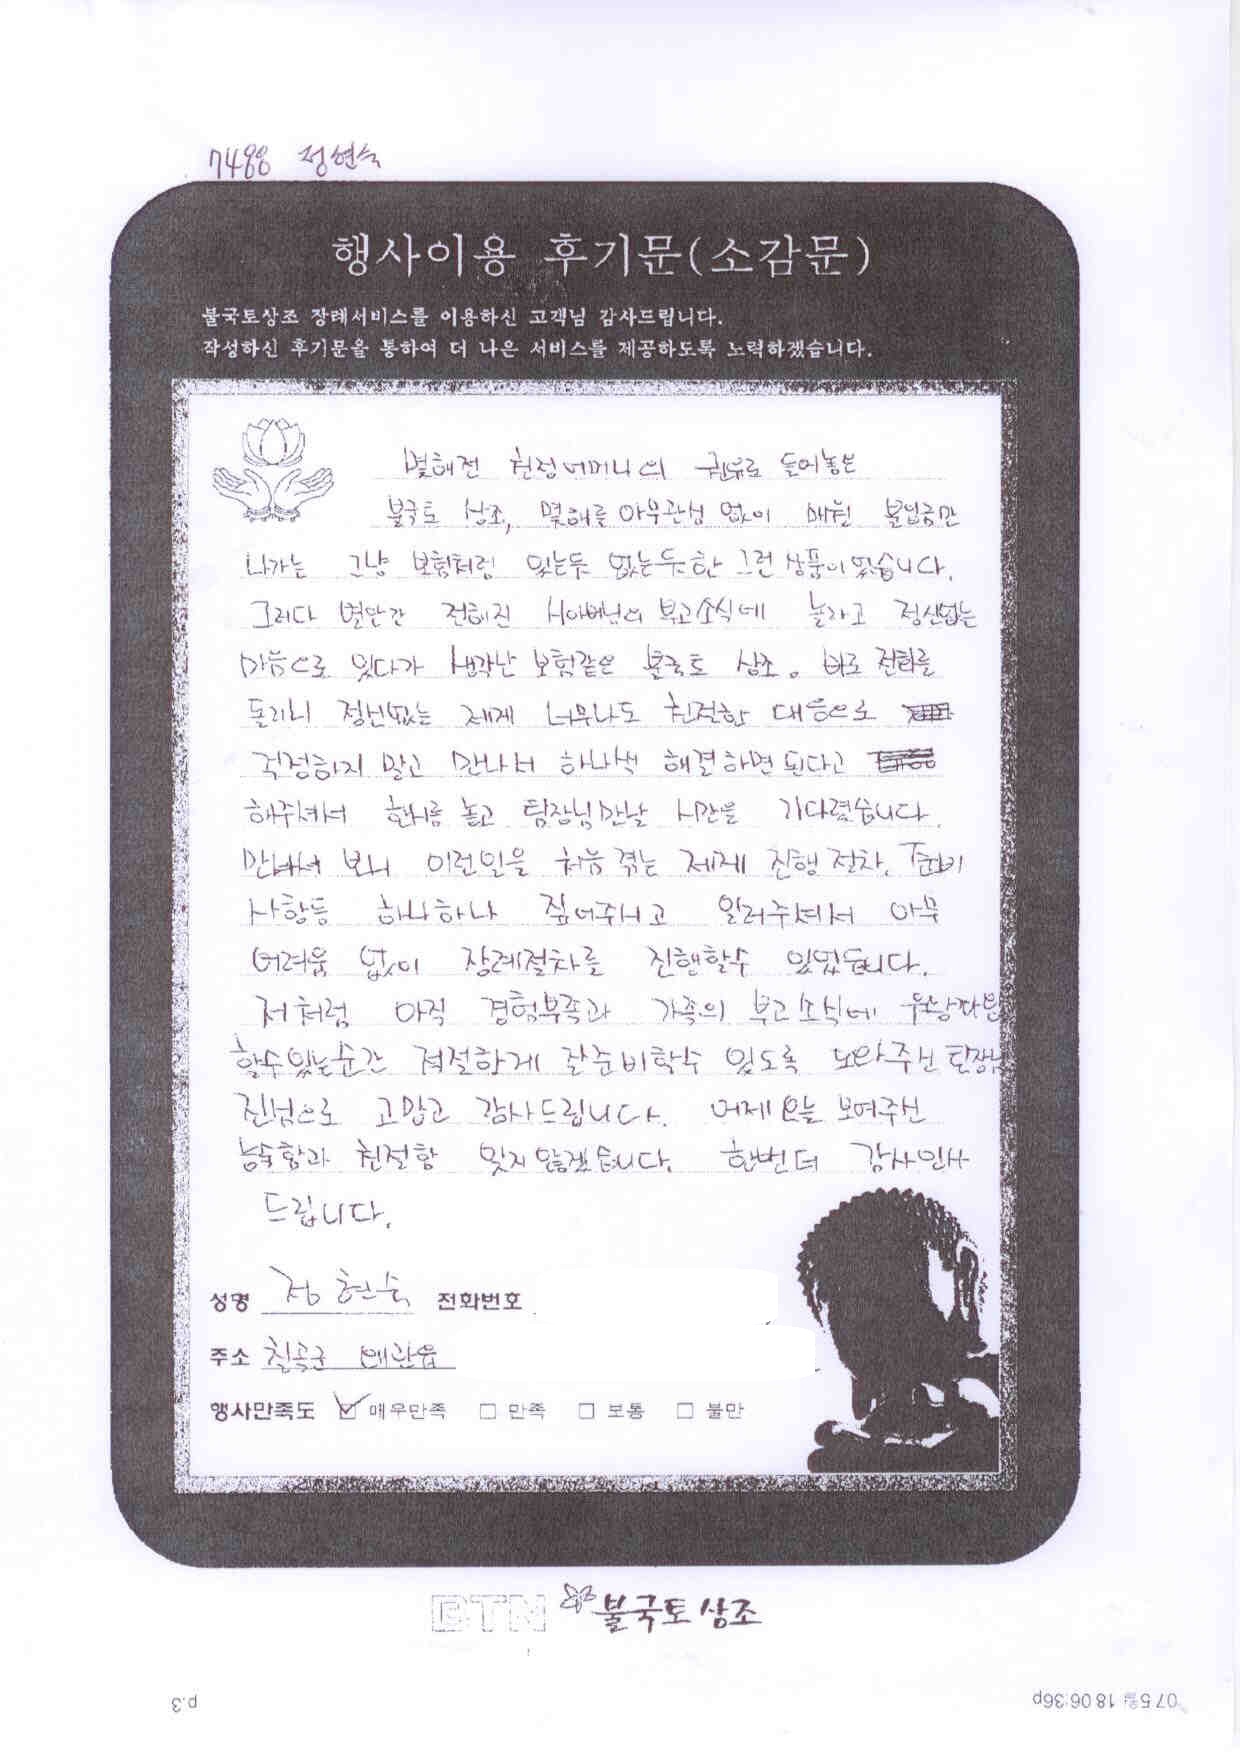 7488 정현숙
행사이용 후기문(소감문)
불국토상조 장례서비스를 이용하신 고객님 감사드립니다.
작성하신 후기문을 통하여 더 나은 서비스를 제공하도록 노력하겠습니다.
몇해전 친정어머니의 권유로 들어놓은
불국토 상조, 몇해를 아무관심 없이 매월 불입금만
나가는 그냥 보험처럼 있는듯 없는듯한 그런 상품이였습니다.
그러다 별안간 전해진 시아버님의 부고소식에 놀라고 정신없는
마음으로 있다가 생각난 보험같은 불국토 상조. 바로 전화를
돌리니 정신없는 제게 너무나도 친절한 대응으로
걱정하지 말고 만나서 하나씩 해결하면 된다고
해주셔서 한시름 놓고 팀장님만날 시간을 기다렸습니다.
만나서 보니 이런일을 처음 겪는 제게 진행 절차,
사항등 하나하나 짚어주시고 알려주셔서 아무
어려움 없이 장례절차를 진행할수 있었습니다.
저처럼 아직 경험부족과 가족의 부고소식에
할수있는순간 적절하게 잘준비할수 있도록 도와주신 팀장님
진심으로 고맙고 감사드립니다. 어제오늘 보여주신
능숙함과 친절함 잊지 않겠습니다. 한번더 감사인사
드립니다.
성명 정현숙 전화번호
주소 칠곡군 왜관읍
행사만족도 ☑ 매우만족 □ 만족 □ 보통 □ 불만
BTN 불국토상조
p.3
07 5월 18 06:36p